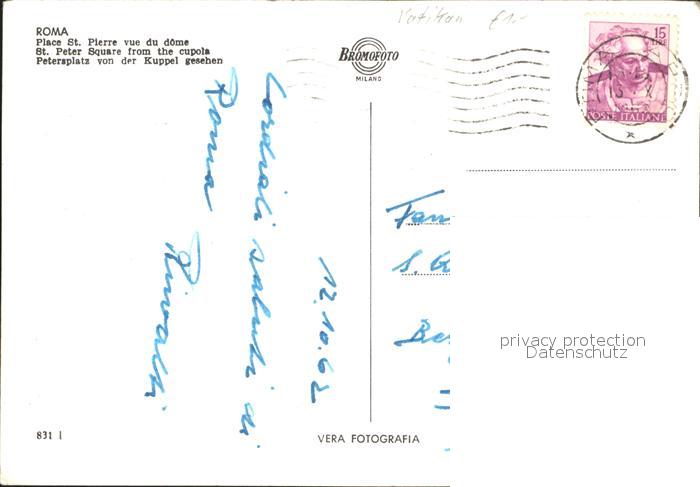 ROMA
Place St. Pierre vue du dôme
St. Peter Square from the cupola
Petersplatz von der Kuppel gesehen
Vatikan
BROMOFOTO
MILANO
15
LIRE
POSTE ITALIANE
12.10.62
Cordiali saluti di
Roma
Fam
S.
privacy protection
Datenschutz
831 I
VERA FOTOGRAFIA